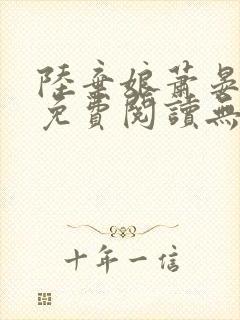 陸棄娘蕭晏
免費閱讀無
十年一信